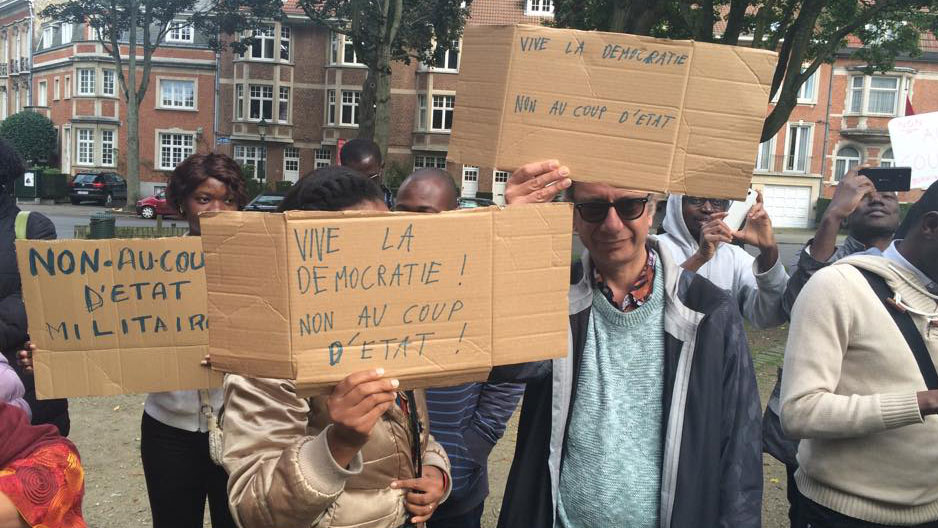 VIVE LA DEMOCRATIE
NON AU COUP D'ETAT
NON-AU-COU
D'ETAT
MILITAIR
VIVE LA
DEMOCRATIE !
NON AU COUP
D'ETAT !